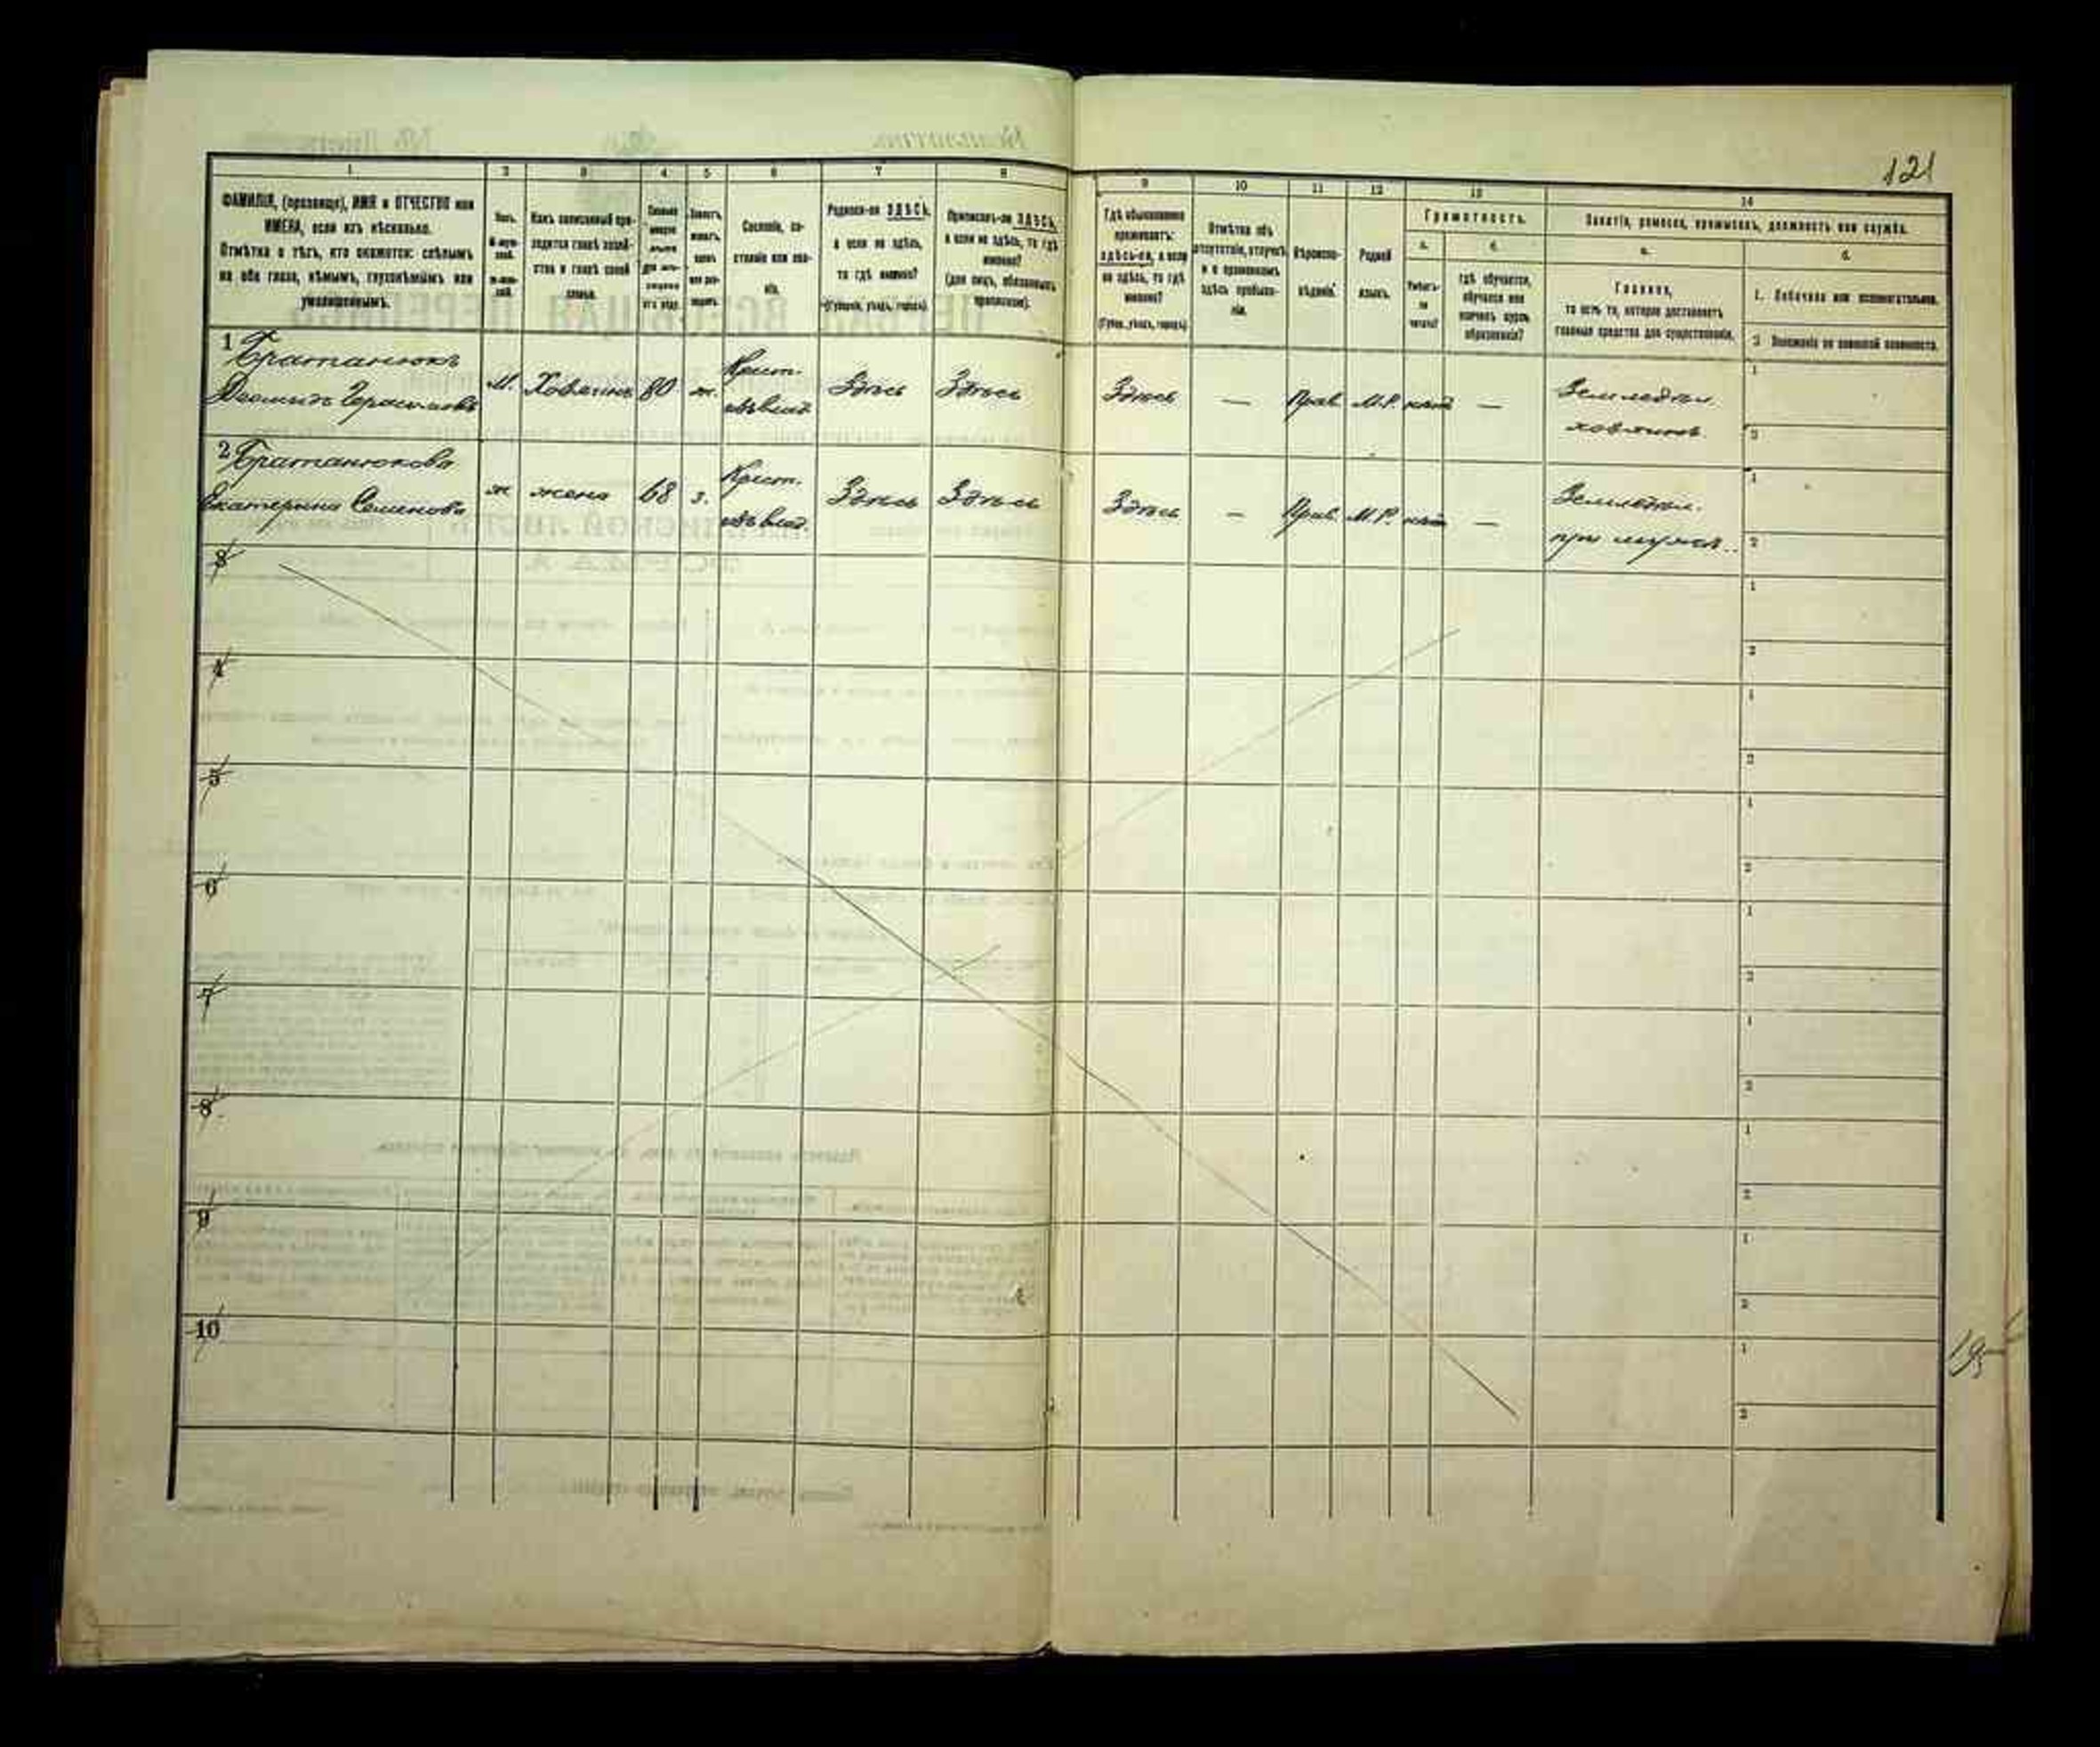 121
1 2 3 4 5 6 7 8 9 10 11 12 13 14
ФАМИЛІЯ, (прозвище), ИМЯ и ОТЧЕСТВО или
ИМЕНА, если ихъ нѣсколько.
Отмѣтка о тѣхъ, кто окажется: слѣпымъ
на оба глаза, нѣмымъ, глухонѣмымъ или
умалишеннымъ.
Полъ.
Какъ записанный при-
ходится главѣ хозяй-
ства и главѣ своей
семьи.
Сословіе, со-
стояніе или зва-
ніе.
Родился-ли ЗДѢСЬ,
а если не здѣсь,
то гдѣ именно?
(Губернія, уѣздъ, городъ).
Приписанъ-ли ЗДѢСЬ,
а если не здѣсь, то гдѣ
именно?
(для лицъ, обязанныхъ
припискою).
Гдѣ обыкновенно
проживаетъ:
здѣсь-ли, а если
не здѣсь, то гдѣ
именно?
(Губер., уѣздъ, городъ)
Отмѣтка объ
отсутствіи, отлучкѣ
и о временномъ
здѣсь пребыва-
ніи.
Вѣроиспо-
вѣданіе.
Родной
языкъ.
Грамотность.
а.
Умѣетъ-
ли
читать?
б.
гдѣ обучается,
обучался или
кончилъ курсъ
образованія?
Занятіе, ремесло, промыселъ, должность или служба.
а.
Главное,
то есть то, которое доставляетъ
главныя средства для существованія.
б.
1. Побочное или вспомогательное.
2 Положеніе по воинской повинности.
1 Братанюкъ
Герасимовъ
М. Хозяинъ 80 ж. Крест. Здѣсь Здѣсь Здѣсь — Прав. М.Р. нѣтъ — Земледѣл.
хозяинъ. 1 2
2 Братанюкова
Екатерина Семенова
ж жена 68 з. Крест. Здѣсь Здѣсь Здѣсь — Прав. М.Р. нѣтъ — Земледѣл.
при мужѣ. 1 2
3 1 2
4 1 2
5 1 2
6 1 2
7 1 2
8 1 2
9 1 2
10 1 2